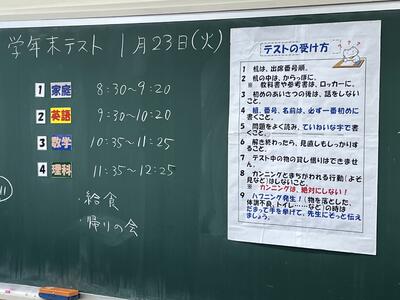 学年末テスト 1月23日(火)
1 家庭 8:30~9:20
2 英語 9:30~10:20
3 数学 10:35~11:25
4 理科 11:35~12:25
・給食
・帰りの会
11
テストの受け方
1 机は、出席番号順。
2 机の中は、からっぽに。
※ 教科書や参考書は、ロッカーに。
3 初めのあいさつの後は、話をしない
こと。
4 組、番号、名前は、必ず一番初めに
書くこと。
5 問題をよく読み、ていねいな字で書
くこと。
6 解き終わったら、見直しもしっかりす
ること。
7 テスト中の物の貸し借りはできませ
ん。
8 カンニングとまちがわれる行動(よそ
見など)はしないこと。
※ カンニングは、絶対にしない!
9 ハプニング発生!(物を落とした、
体調不良、トイレ……など)の時は
だまって手を挙げて、先生にそっと伝え
ましょう。